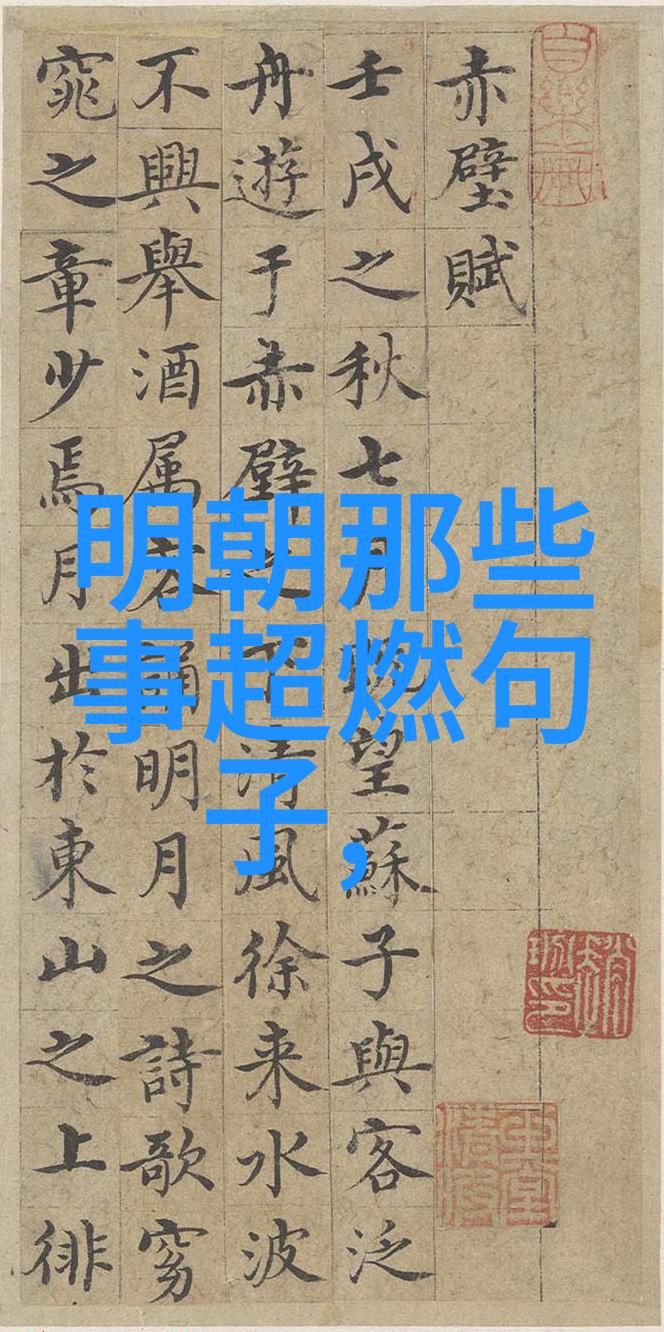 赤壁賦
壬戌之秋七月既望蘇子與客泛
舟遊于赤壁之下清風徐来水波
不興舉酒属客誦明月之詩歌窈
窕之章少焉月出於東山之上徘
明朝那些
事超燃句
子,